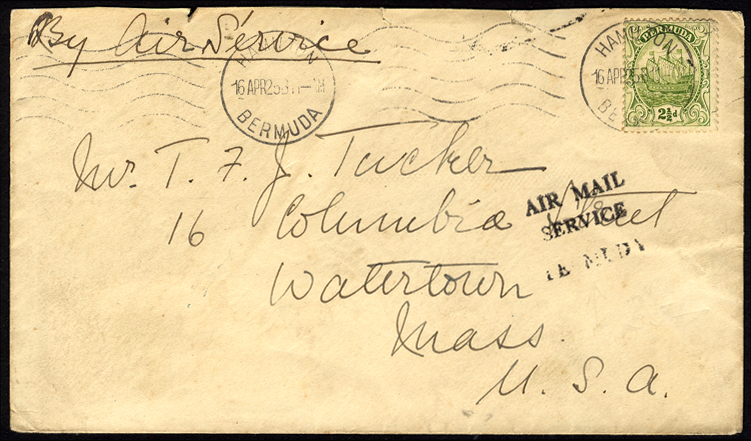 By Air Service
HAMILTON
16 APR 25
BERMUDA
HAMILTON
16 APR 25
BERMUDA
2½d
Mr. T. F. J. Tucker
16 Columbia Street
Watertown
Mass.
U. S. A.
AIR MAIL
SERVICE